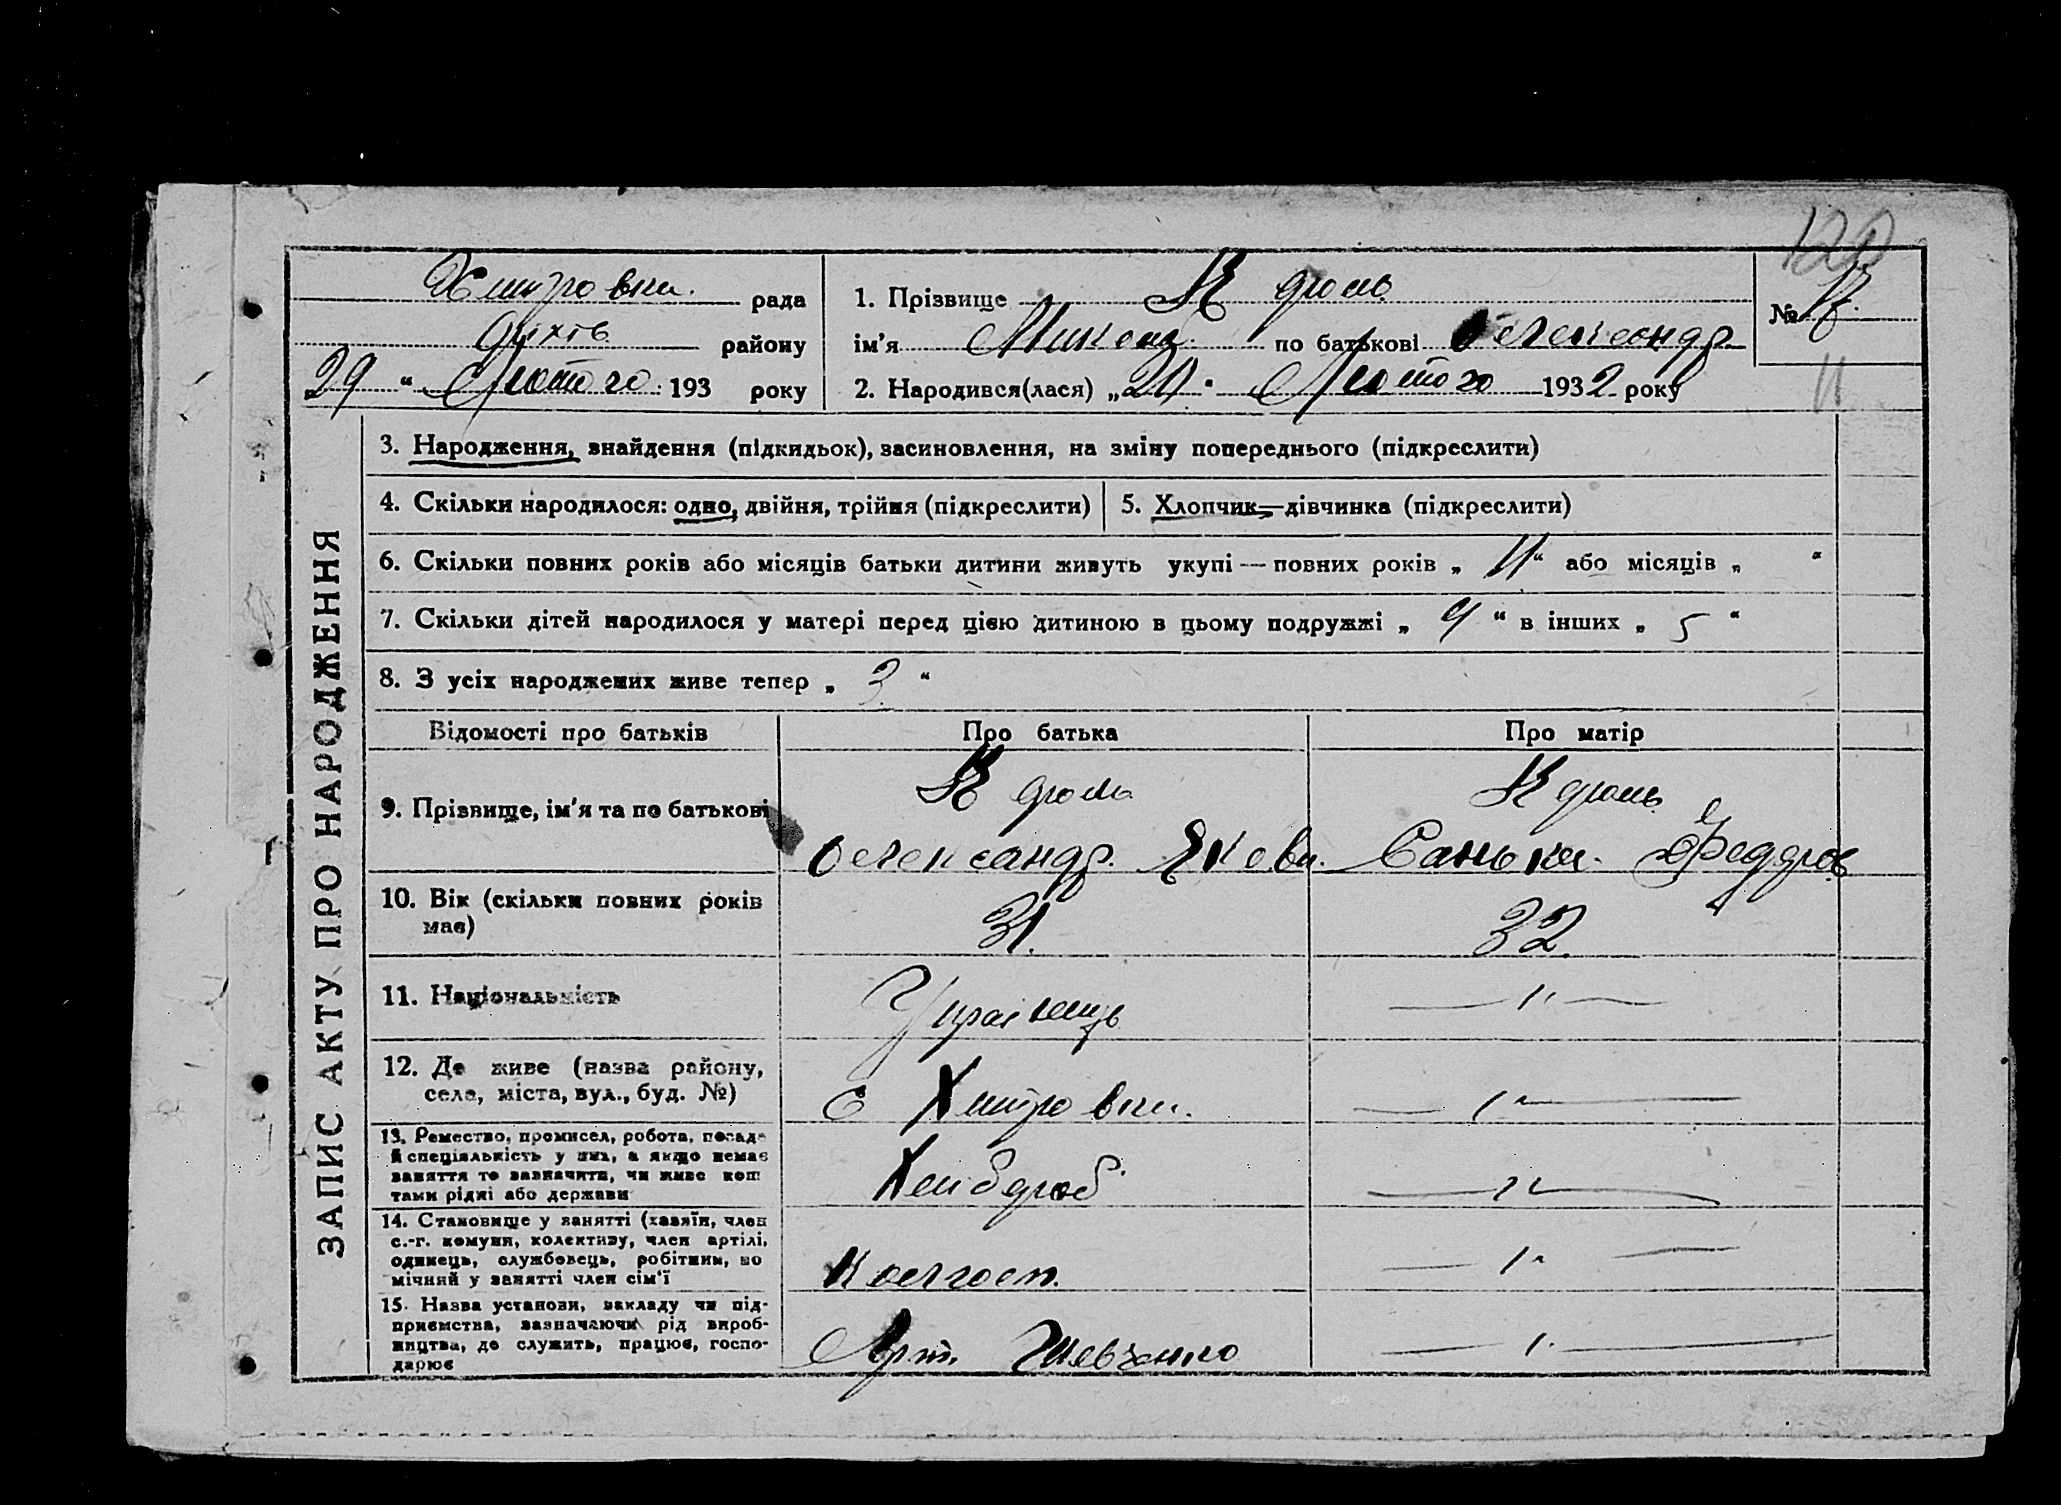 120
Хитровки. рада
району
29 " Лютого. 193 року
1. Прізвище Кроль
ім'я Микола по батькові Олександр.
2. Народився(лася) „ " Лютого 1932 року
№ 17.
11
ЗАПИС АКТУ ПРО НАРОДЖЕННЯ
3. Народження, знайдення (підкидьок), засиновлення, на зміну попереднього (підкреслити)
4. Скільки народилося: одно, двійня, трійня (підкреслити)
5. Хлопчик—дівчинка (підкреслити)
6. Скільки повних років або місяців батьки дитини живуть укупі — повних років „ 11 “ або місяців „ “
7. Скільки дітей народилося у матері перед цією дитиною в цьому подружжі „ 4 “ в інших „ 5 “
8. З усіх народжених живе тепер „ 3 “
Відомості про батьків Про батька Про матір
9. Прізвище, ім'я та по батькові
Кроль
Олександр. Якови.
Кроль
Санька. Федоров
10. Вік (скільки повних років
має)
31.
32.
11. Національність
Українець
— " —
12. Де живе (назва району,
села, міста, вул., буд. №)
С Хитровки.
— " —
13. Ремество, промисел, робота, посада
й спеціяльність у них, а якщо немає
заняття то зазначити, чи живе кош
тами рідні або держави
Хлібороб
— " —
14. Становище у занятті (хазяїн, член
с.-г. комуни, колективу, член артілі,
одинець, службовець, робітник, по
мічний у занятті член сім'ї
Колгосп.
— " —
15. Назва установи, закладу чи під-
приємства, зазначаючи рід вироб-
ництва, де служить, працює, госпо-
дарює
Арт. Шевченко
— " —